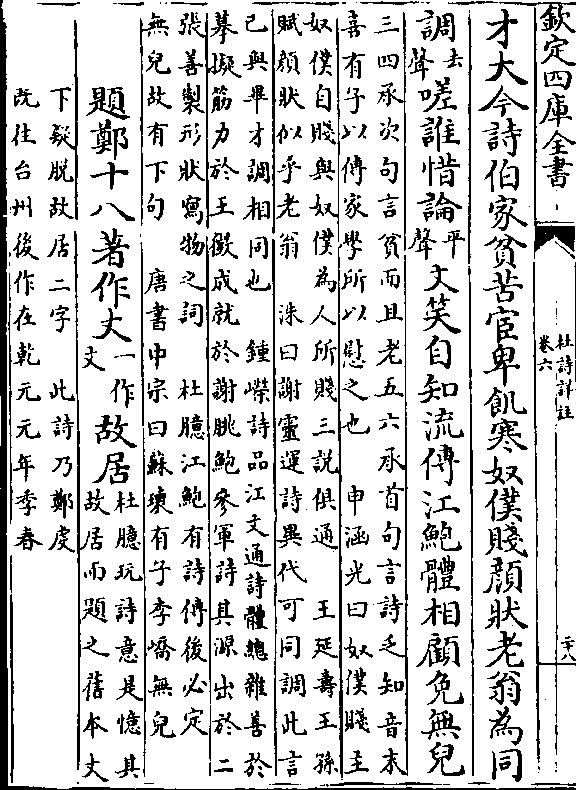 欽定四庫全書
杜詩詳註
卷六
二十八
才大今詩伯家貧苦宦卑飢寒奴僕賤顔狀老翁為同
調去聲嗟誰惜論平聲文笑自知流傳江鮑體相顧免無兒
三四承次句言貧而且老五六承首句言詩乏知音末
喜有子以傳家學所以慰之也 申涵光曰奴僕賤主
奴僕自賤與奴僕為人所賤三説俱通 王延壽王孫
賦顔狀似乎老翁 洙曰謝靈運詩異代可同調此言
已與畢才調相同也 鍾嶸詩品江文通詩體總雜善於
摹擬筋力於王微成就於謝朓鮑參軍詩其源出於二
張善製形狀寫物之詞 杜臆江鮑有詩傳後必定
無兒故有下句 唐書中宗曰蘇瓌有子李嶠無兒
題鄭十八著作丈一作文故居杜臆玩詩意是憶其
故居而題之舊本丈
下疑脱故居二字 此詩乃鄭虔
既往台州後作在乾元元年季春